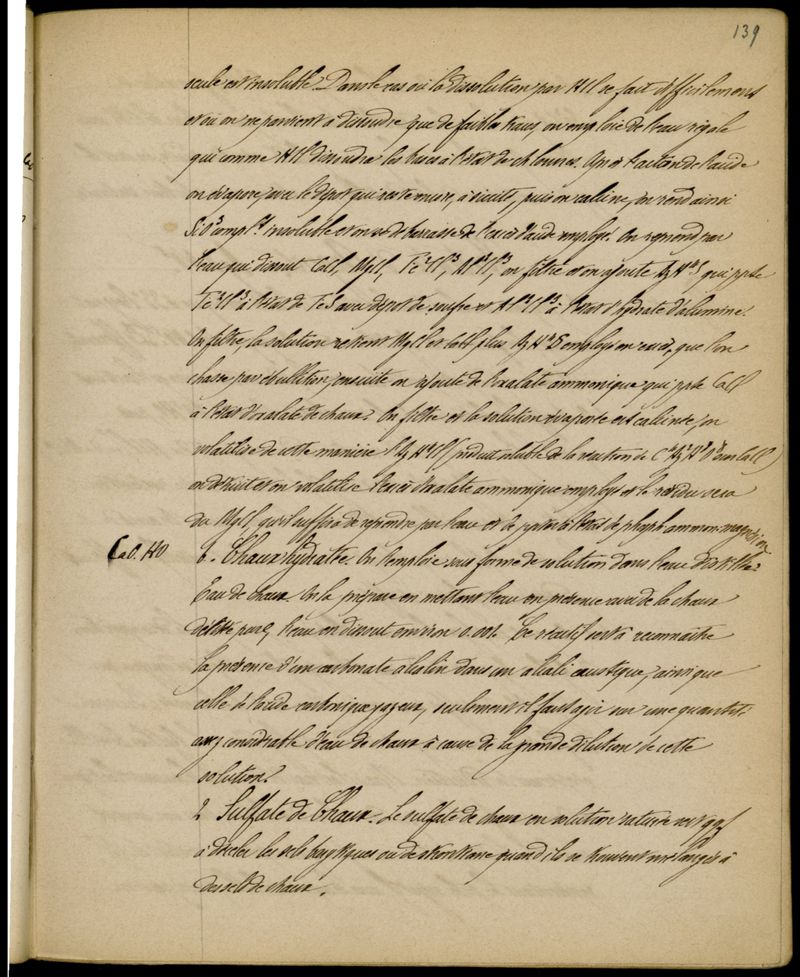 139
seule est insoluble. Dans le cas où la dissolution par HCl se fait difficilement
et où on ne parvient à dissoudre que de faibles traces, on emploie de l'eau régale
qui comme HCl dissoudra les bases à l'état de chlorures. Après l'action de l'acide
on évapore, avec le dépôt qui reste encore, à siccité, puis on calcine, on rend ainsi
SiO³ compl^t insoluble et on se débarrasse de l'excès d'acide employé. On reprend par
l'eau qui dissout CaCl, MgCl, Fe²Cl³, Al²Cl³, on filtre et on ajoute AzH⁴S qui ppte
Fe²Cl³ à l'état de FeS avec dépôt de soufre et Al²Cl³ à l'état d'hydrate d'alumine.
On filtre, la solution retient MgCl et CaCl plus AzH⁴S employé en excès, que l'on
chasse par ébullition, ensuite on ajoute de l'oxalate ammonique qui ppte CaCl
à l'état d'oxalate de chaux. On filtre et la solution évaporée est calcinée, on
volatilise de cette manière l'AzH⁴Cl (produit soluble de la réaction de sur CaCl)
on détruit et on volatilise l'excès d'oxalate ammonique employé et le résidu sera
du MgCl, qu'il suffira de reprendre par l'eau et de ppter à l'état de phosph. ammon. magnésien
CaO.HO
6. Chaux hydratée. On l'emploie sous forme de solution dans l'eau distillée.
Eau de chaux. On la prépare en mettant l'eau en présence avec de la chaux
délitée pure, l'eau en dissout environ 0.001. Ce réactif sert à reconnaître
la présence d'un carbonate alcalin dans un alcali caustique, ainsi que
celle de l'acide carbonique gazeux, seulement il faut agir sur une quantité
assez considérable d'eau de chaux à cause de la grande dilution de cette
solution.
2 Sulfate de Chaux. Le sulfate de chaux en solution saturée sert qqf
à déceler les sels barytiques ou de strontiane quand ils se trouvent mélangés à
des sels de chaux.